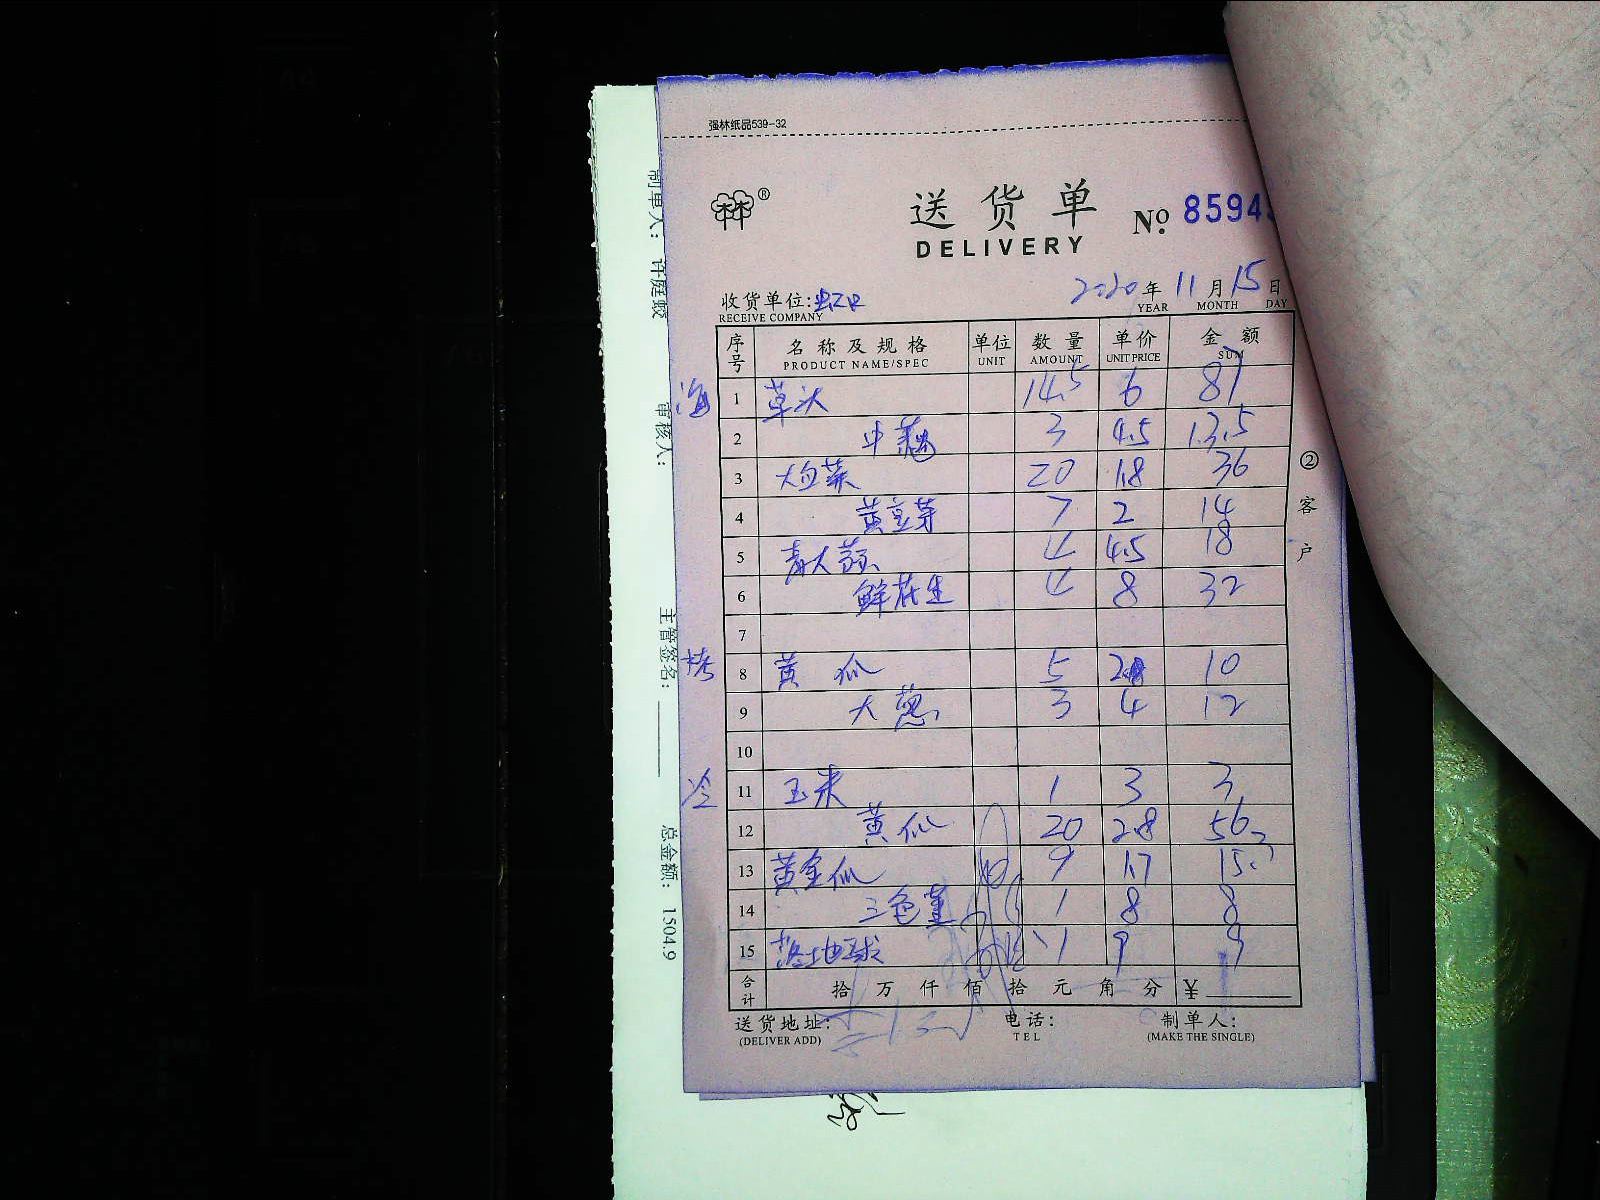 强林纸品539-32
林®
送货单
DELIVERY
No. 8594
收货单位: 虹口
RECEIVE COMPANY
2020年 11月 15日
YEAR MONTH DAY
序号 名称及规格 单位 数量 单价 金额
PRODUCT NAME/SPEC UNIT AMOUNT UNIT PRICE SUM
海 1 草头 14.5 6 87
2 中 3 4.5 13.5
3 大白菜 20 1.8 36
4 黄豆芽 7 2 14
5 青大蒜 4 4.5 18
6 鲜花生 4 8 32
7
烤 8 黄瓜 5 2 10
9 大葱 3 4 12
10
冷 11 玉米 1 3 3
12 黄瓜 20 2.8 56
13 黄金瓜 9 1.7 15.3
14 三色堇 1 8 8
15 落地球 1 9 9
合计 拾 万 仟 佰 拾 元 角 分 ¥
送货地址: 电话: 制单人:
(DELIVER ADD) TEL (MAKE THE SINGLE)
②客户
制单人: 许庭
审核人:
主管签名:
总金额: 1504.9